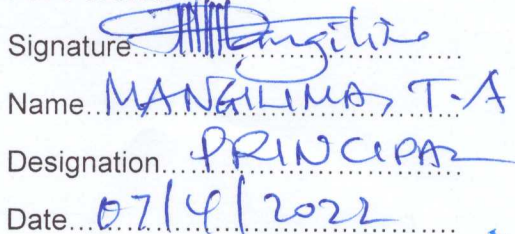 Signature..............
Name..MANGILIMA, T.A
Designation....PRINCIPAL
Date...07/4/2022